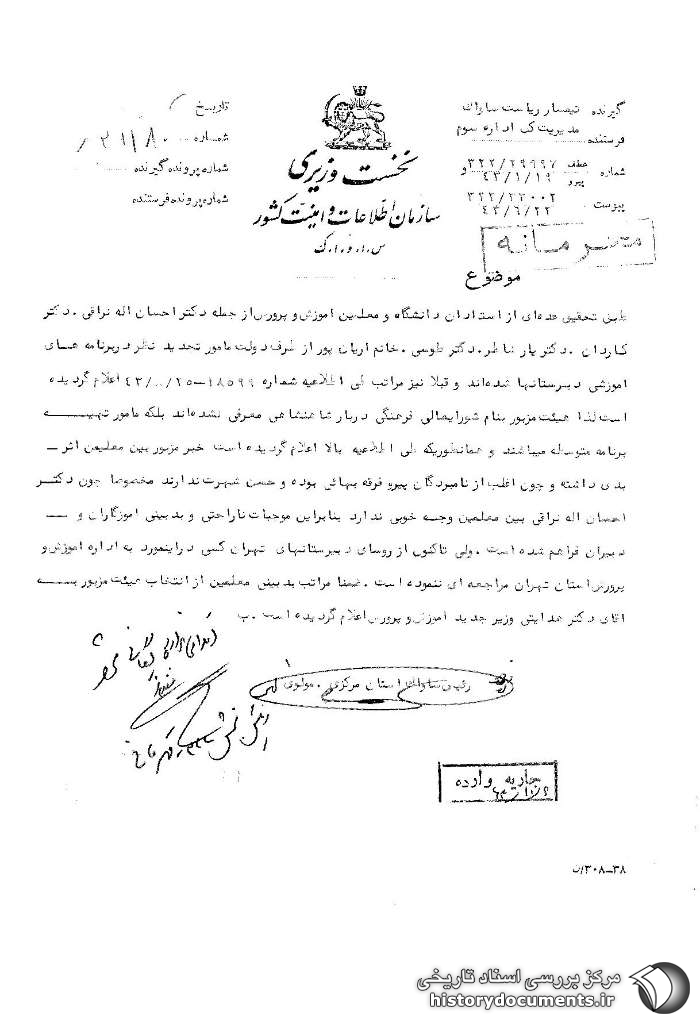 گیرنده تیمسار ریاست ساواک
فرستنده مدیریت کل اداره سوم
شماره عطف ۳۲۲/۲۹۹۹۷ و
پیرو ۴۳/۱/۱۹
پیوست ۳۲۲/۲۳۰۰۲
۴۳/۶/۲۲
نخست وزیری
سازمان اطلاعات و امنیت کشور
س.ا.و.ا.ک
تاریخ
شماره
شماره پرونده گیرنده
شماره پرونده فرستنده
محرمانه
موضوع
طبق تحقیق عده‌ای از استادان دانشگاه و معلمین آموزش و پرورش از جمله دکتر احسان اله نراقی . دکتر
کاردان . دکتر یار شاطر . دکتر طوسی . خانم آریان پور از طرف دولت مامور تجدید نظر در برنامه های
آموزشی دبیرستانها شده‌اند و قبلا نیز مراتب طی اطلاعیه شماره ۱۸۵۹۹-۲۵/۰۰/۴۳ اعلام گردیده
است لذا هیئت مزبور بنام شورایعالی فرهنگی دربار شاهنشاهی معرفی نشده‌اند بلکه مامور تهیـــه
برنامه متوسطه میباشند و همانطوریکه طی اطلاعیه بالا اعلام گردیده است خبر مزبور بین معلمین اثر
بدی داشته و چون اغلب از نامبردگان پیرو فرقه بهائی بوده و حسن شهرت ندارند مخصوصا چون دکتـر
احسان اله نراقی بین معلمین وجهه خوبی ندارد بنابراین موجبات ناراحتی و بدبینی آموزگاران و
دبیران فراهم شده است . ولی تاکنون از روسای دبیرستانهای تهران کسی در اینمورد به اداره آموزش و
پرورش استان تهران مراجعه ای ننموده است . ضمنا مراتب بدبینی معلمین از انتخاب هیئت مزبور بـــه
آقای دکتر هدایتی وزیر جدید آموزش و پرورش اعلام گردیده است . ب
رئیس ساواک استان مرکزی . مولوی
جاریه وارده
۳۰۸-۳۸/ت
مرکز بررسی اسناد تاریخی
historydocuments.ir